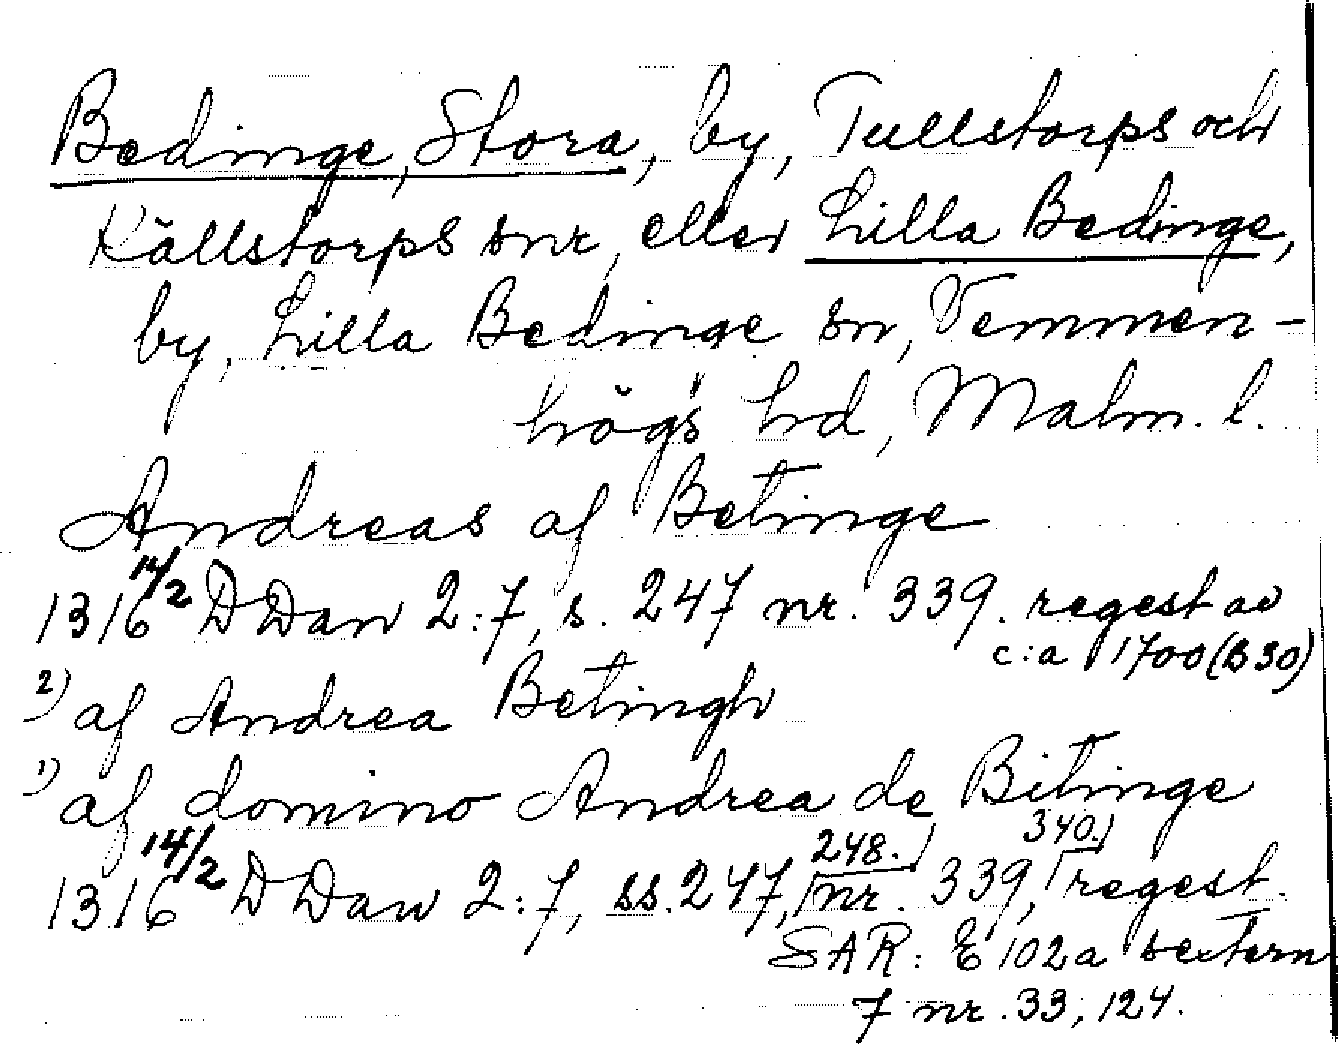 Bedinge, Stora, by, Tullstorps och
Källstorps snr, eller Lilla Bedinge,
by, Lilla Bedinge sn, Vemmen-
högs hd, Malm. l.
Andreas af Betinge
1316 14/2 DDan 2:7, s. 247 nr. 339. regest av
c:a 1700 (B 30)
2) af Andrea Betingh
1) af domino Andrea de Bitinge
1316 14/2 DDan 2:7, ss. 247, 248. nr. 339, 340. regest.
SAR: E 102a sextern
7 nr. 33, 124.